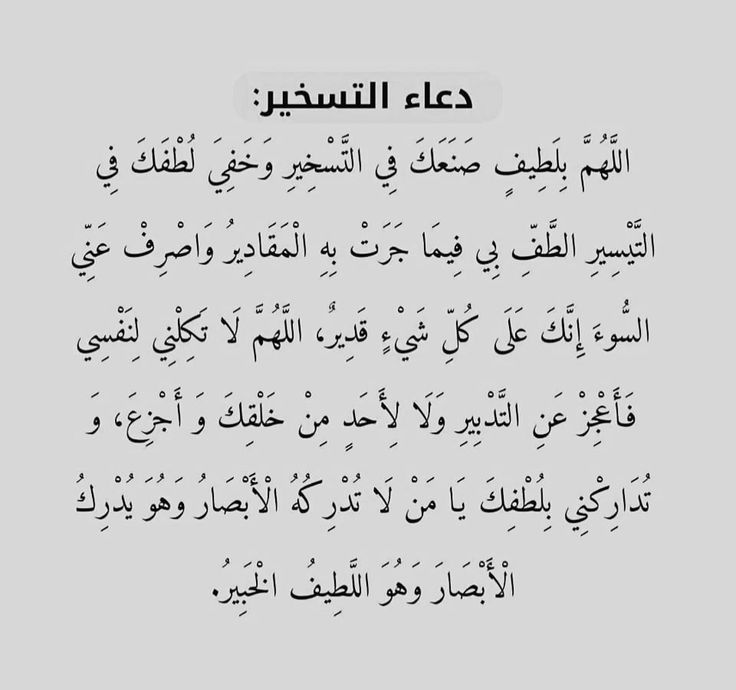 دعاء التسخير:
اللَّهُمَّ بِلَطِيفٍ صَنَعَكَ فِي التَّسْخِيرِ وَخَفِيَ لُطْفَكَ فِي
التَّيْسِيرِ الطَّفّ بِي فِيمَا جَرَتْ بِهِ الْمَقَادِيرُ وَاصْرِفْ عَنِّي
السُّوءَ إِنَّكَ عَلَى كُلِّ شَيْءٍ قَدِيرٌ، اللَّهُمَّ لَا تَكِلْنِي لِنَفْسِي
فَأَعْجِزْ عَنِ التَّدْبِيرِ وَلَا لِأَحَدٍ مِنْ خَلْقِكَ وَ أَجْزِعَ، وَ
تُدَارِكْنِي بِلُطْفِكَ يَا مَنْ لَا تُدْرِكُهُ الْأَبْصَارُ وَهُوَ يُدْرِكُ
الْأَبْصَارَ وَهُوَ اللَّطِيفُ الْخَبِيرُ.